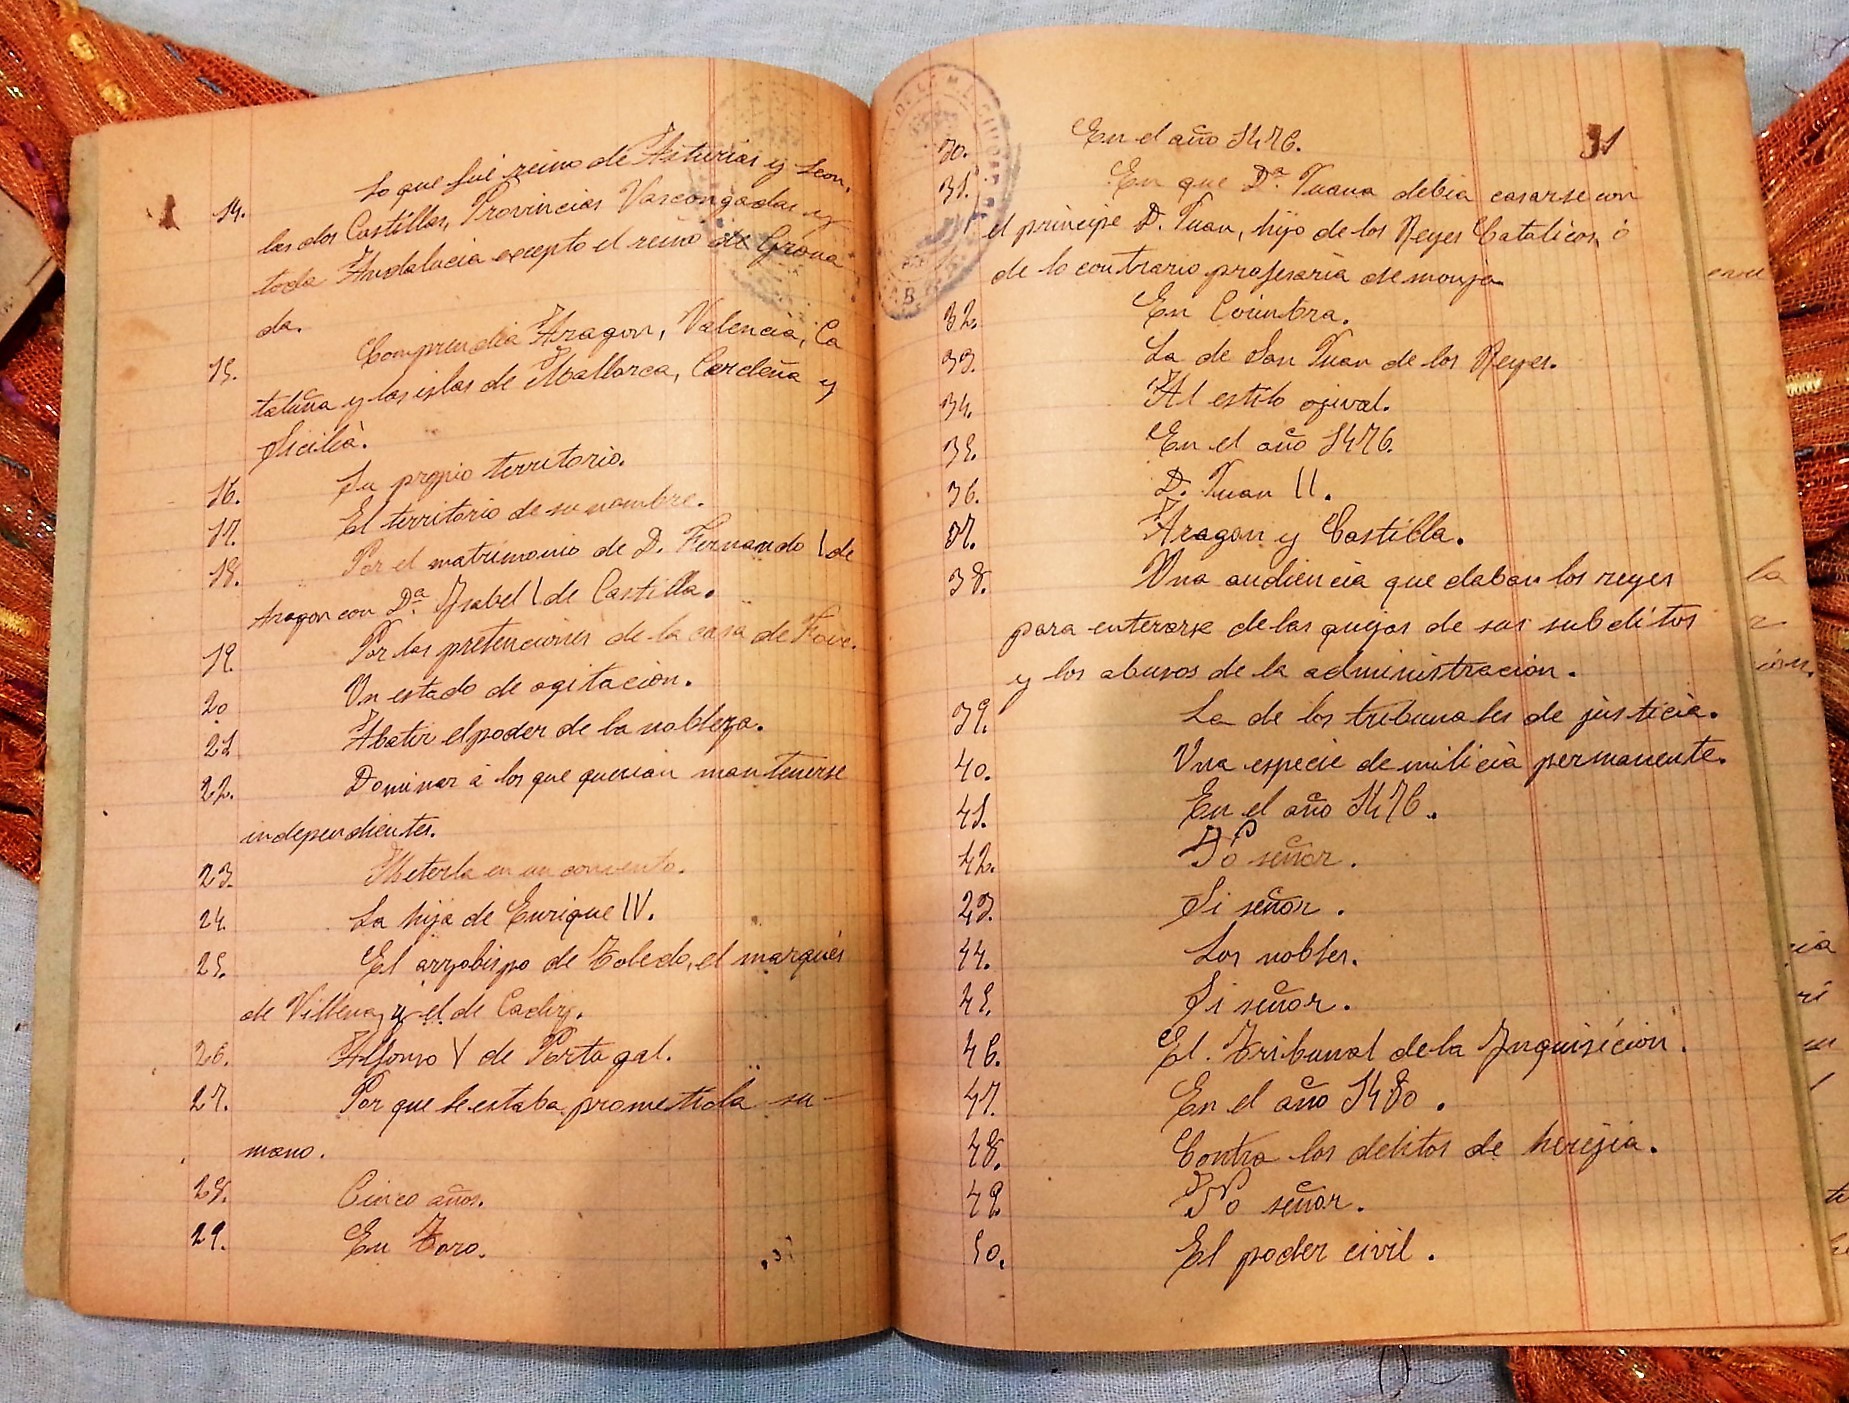 14. Lo que fué reino de Asturias y Leon,
las dos Castillas, Provincias Vascongadas y
toda Andalucia excepto el reino de Grana
da.
15. Comprendia Aragon, Valencia, Ca
taluña y las islas de Mallorca, Cerdeña y
Sicilia.
16. Su propio territorio.
17. El territorio de su nombre.
18. Por el matrimonio de D. Fernando I de
Aragon con Dª Ysabel I de Castilla.
19. Por las pretenciones de la casa de Foix.
20 Un estado de agitacion.
21 Abatir el poder de la nobleza.
22. Dominar á los que querian mantenerse
independientes.
23. Meterla en un convento.
24. La hija de Enrique IV.
25. El arzobispo de Toledo, el marqués
de Villena, y el de Cadiz.
26. Alfonso V de Portugal.
27. Por que le estaba prometida su
mano.
28. Cinco años.
29. En Toro.
31
30. En el año 1476.
31. En que Dª Juana debia casarse con
el principe D. Juan, hijo de los Reyes Catolicos, ó
de lo contrario profesaria de monja.
32. En Coimbra.
33. La de San Juan de los Reyes.
34. Al estilo ojival.
35. En el año 1476.
36. D. Juan II.
37. Aragon y Castilla.
38. Una audiencia que daban los reyes
para enterarse de las quejas de sus subditos
y los abusos de la administración.
39. La de los tribunales de justicia.
40. Una especie de milicia permanente.
41. En el año 1476.
42. No señor.
23. Si señor.
44. Los nobles.
45. Si señor.
46. El Tribunal de la Ynquisición.
47. En el año 1480.
48. Contra los delitos de herejia.
49. No señor.
50. El poder civil.